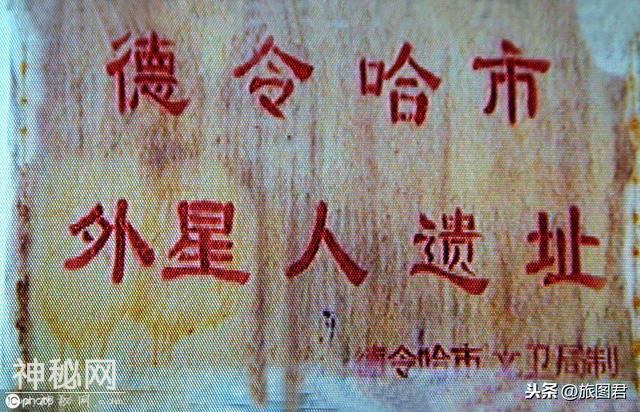 德令哈市
外星人遗址
德令哈市 卫局制
神秘网
头条 @旅图君